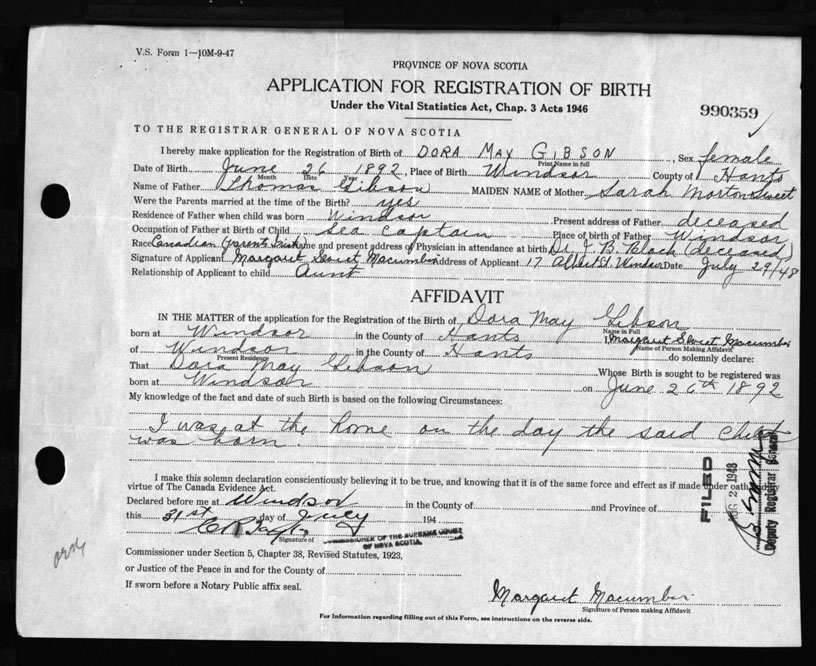 V.S. Form 1—10M-9-47
PROVINCE OF NOVA SCOTIA
APPLICATION FOR REGISTRATION OF BIRTH
Under the Vital Statistics Act, Chap. 3 Acts 1946
990359
TO THE REGISTRAR GENERAL OF NOVA SCOTIA
I hereby make application for the Registration of Birth of DORA MAY GIBSON, Sex female
Print Name in full
Date of Birth June 26 1892, Place of Birth Windsor County of Hants
Month Date Year
Name of Father Thomas Gibson MAIDEN NAME of Mother Sarah Morton Sweet
Were the Parents married at the time of the Birth? yes
Residence of Father when child was born Windsor Present address of Father deceased
Occupation of Father at Birth of Child Sea Captain Place of birth of Father Windsor
Race Canadian (Parents Irish) Name and present address of Physician in attendance at birth Dr. J. B. Black (deceased)
Signature of Applicant Margaret Sweet Macumber Address of Applicant 17 Albert St. Windsor Date July 29/48
Relationship of Applicant to child Aunt
AFFIDAVIT
IN THE MATTER of the application for the Registration of the Birth of Dora May Gibson
Name in Full
born at Windsor in the County of Hants I, Margaret Sweet Macumber
Name of Person Making Affidavit
of Windsor in the County of Hants do solemnly declare:
Present Residence
That Dora May Gibson Whose Birth is sought to be registered was
born at Windsor on June 26th 1892
My knowledge of the fact and date of such Birth is based on the following Circumstances:
I was at the home on the day the said child
was born.
I make this solemn declaration conscientiously believing it to be true, and knowing that it is of the same force and effect as if made under oath by
virtue of The Canada Evidence Act.
Declared before me at Windsor in the County of and Province of
this 31st day of July 194
Signature of COMMISSIONER OF THE SUPREME COURT
OF NOVA SCOTIA
Commissioner under Section 5, Chapter 38, Revised Statutes, 1923,
or Justice of the Peace in and for the County of
If sworn before a Notary Public affix seal.
FILED
AUG 2 1948
Deputy Registrar General
Margaret Macumber
Signature of Person making Affidavit
For Information regarding filling out of this Form, see instructions on the reverse side.